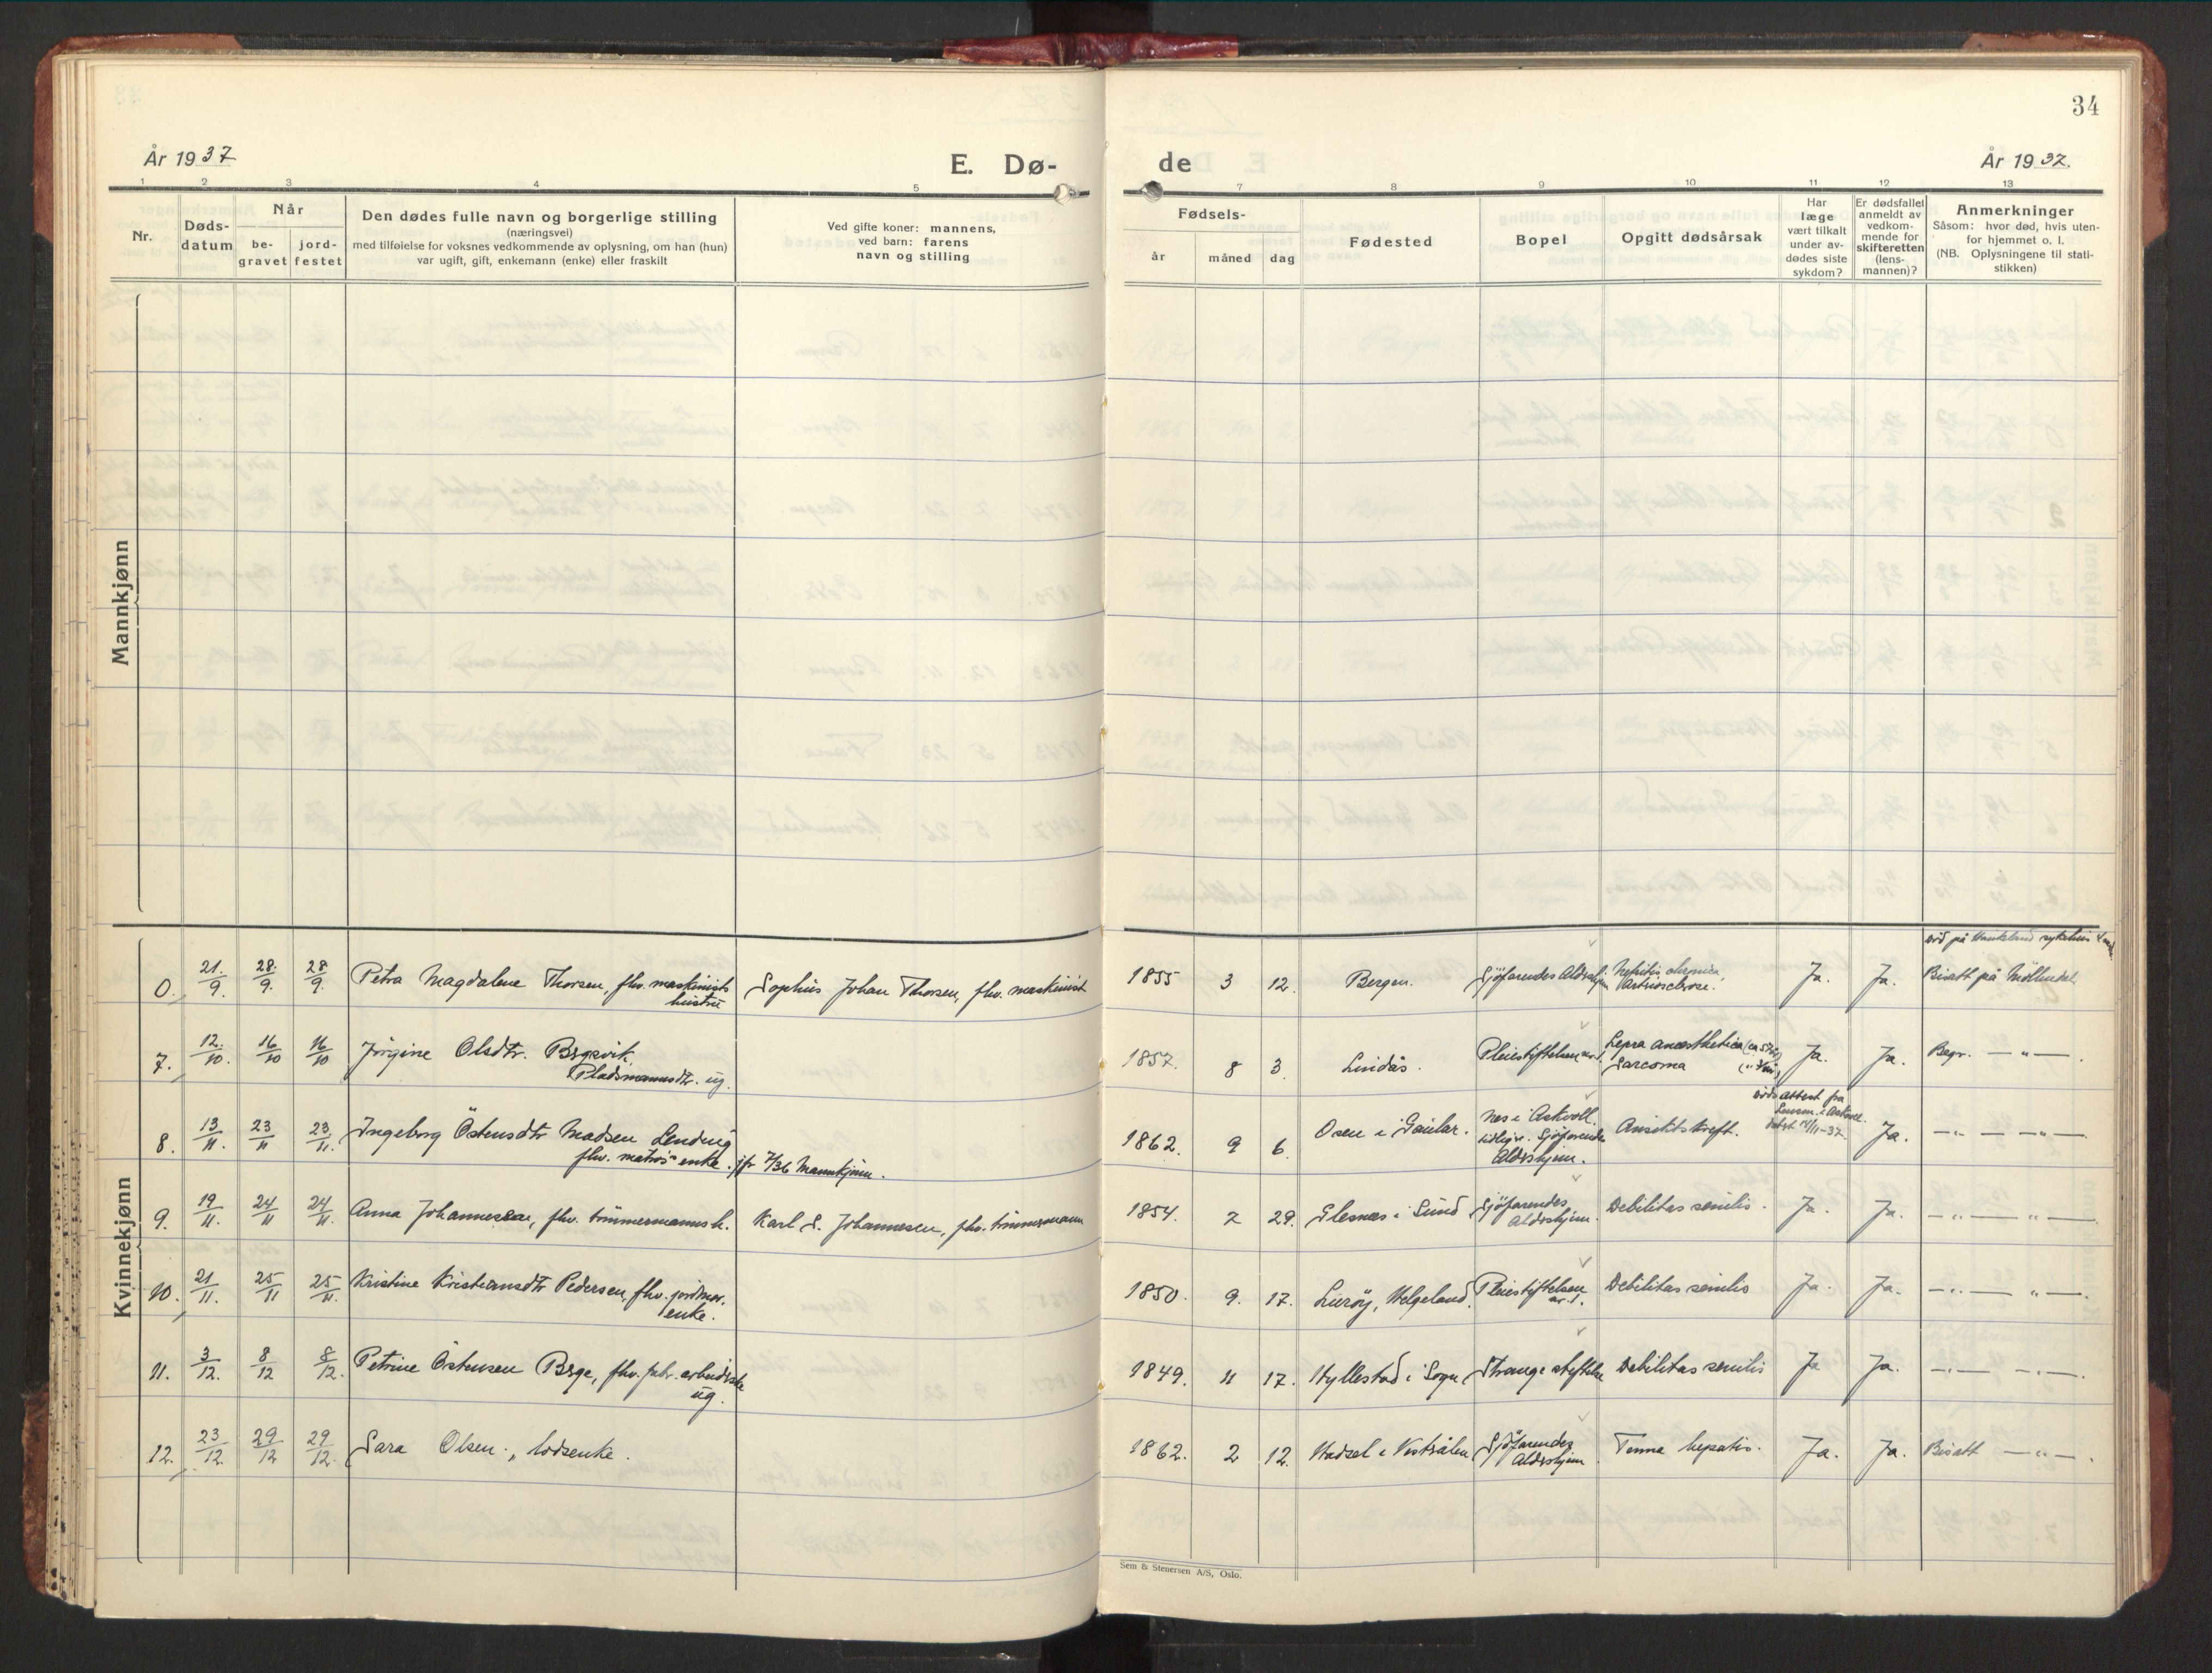 34
År 1937
E. Dø-
de
År 1937.
1 2 3 4 5
7 8 9 10 11 12 13
Nr.
Døds-
datum
Når
be-
gravet
jord-
festet
Den dødes fulle navn og borgerlige stilling
(næringsvei)
med tilføielse for voksnes vedkommende av oplysning, om han (hun)
var ugift, gift, enkemann (enke) eller fraskilt
Ved gifte koner: mannens,
ved barn: farens
navn og stilling
Fødsels-
år
måned
dag
Fødested
Bopel
Opgitt dødsårsak
Har
læge
vært tilkalt
under av-
dødes siste
sykdom?
Er dødsfallet
anmeldt av
vedkom-
mende for
skifteretten
(lens-
mannen)?
Anmerkninger
Såsom: hvor død, hvis uten-
for hjemmet o. l.
(NB. Oplysningene til stati-
stikken)
Mannkjønn
Kvinnekjønn
død på Haukeland sykehus
0. 21./9. 28./9. 28/9. Petra Magdalene Thorsen, fhv. maskinists
hustru
Sophus Johan Thorsen, fhv. maskinist
1855 3 12. Bergen. Sjöfarendes Aldershjem Nefritis chronica,
Arteriosclerose.
Ja. Ja. Bisatt på Möllendal
7. 12./10. 16/10 16/10 Jörgine Olsdtr. Bergsvik
Pladsmannsdtr. ug.
1857. 8 3. Lindås. Pleiestiftelsen nr. 1. Lepra anæsthetica (ca 57 år)
Sarcoma
Ja. Ja. Begr. — " —.
8. 13/11. 23/11 23./11. Ingeborg Östensdtr Madsen Lending
fhv. matros enke. jfr 7/36 Mannkjønn.
1862. 9 6. Osen i Gaular. Nes i Askvoll.
tidligr. Sjöfarendes
Aldershjem.
Ansiktskreft.
döds attest fra
Lensm. i Askvoll.
datert 14/11-37.
Ja. — " — " —.
9. 19/11. 24/11 24/11. Anna Johannessen, fhv. tömmermannsh. Karl S. Johannesen, fhv. tömmermann
1854. 2 29. Glesnæs i Sund Sjöfarendes
Aldershjem.
Debilitas senilis. Ja. Ja. — " — " —.
10. 21/11. 25/11 25/11. Kristine Kristiansdtr Pedersen, fhv. jordmor.
enke.
1850. 9. 17. Luröy, Helgeland. Pleiestiftelsen
nr. 1.
Debilitas senilis Ja. Ja. — " — " —.
11. 3/12. 8/12 8/12. Petrine Östensen Berge, fhv. fabr. arbeiderske
ug.
1849. 11 17. Hyllestad i Sogn Stranges stiftelse Debilitas senilis Ja Ja. — " — " —.
12. 23/12. 29/12 29/12. Sara Olsen, lodsenke.
1862. 2 12. Hadsel i Vesterålen Sjöfarendes
Aldershjem
hepatis. Ja. Ja. Bisatt — " —.
Sem & Stenersen A/S, Oslo.